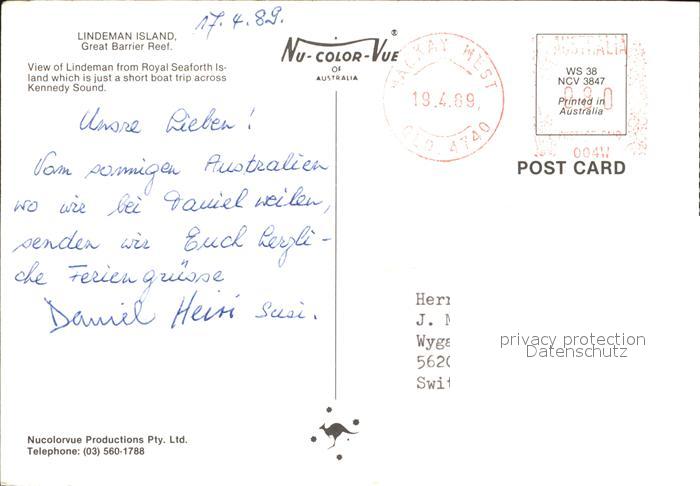 17.4.89.
LINDEMAN ISLAND,
Great Barrier Reef.
View of Lindeman from Royal Seaforth Is-
land which is just a short boat trip across
Kennedy Sound.
NU-COLOR-VUE®
OF
AUSTRALIA
MACKAY WEST
19.4.89
QLD. 4740
AUSTRALIA
WS 38
NCV 3847
Printed in
Australia
004W
POST CARD
Unsre Lieben!
Vom sonnigen Australien
wo wir bei Daniel weilen,
senden wir Euch herzli-
che Feriengrüsse
Daniel Heisi Susi.
Herr
J.
Wyga
5620
Swit
privacy protection
Datenschutz
Nucolorvue Productions Pty. Ltd.
Telephone: (03) 560-1788